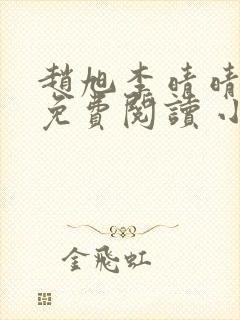 趙旭李晴晴
免費閱讀小
金飛虹